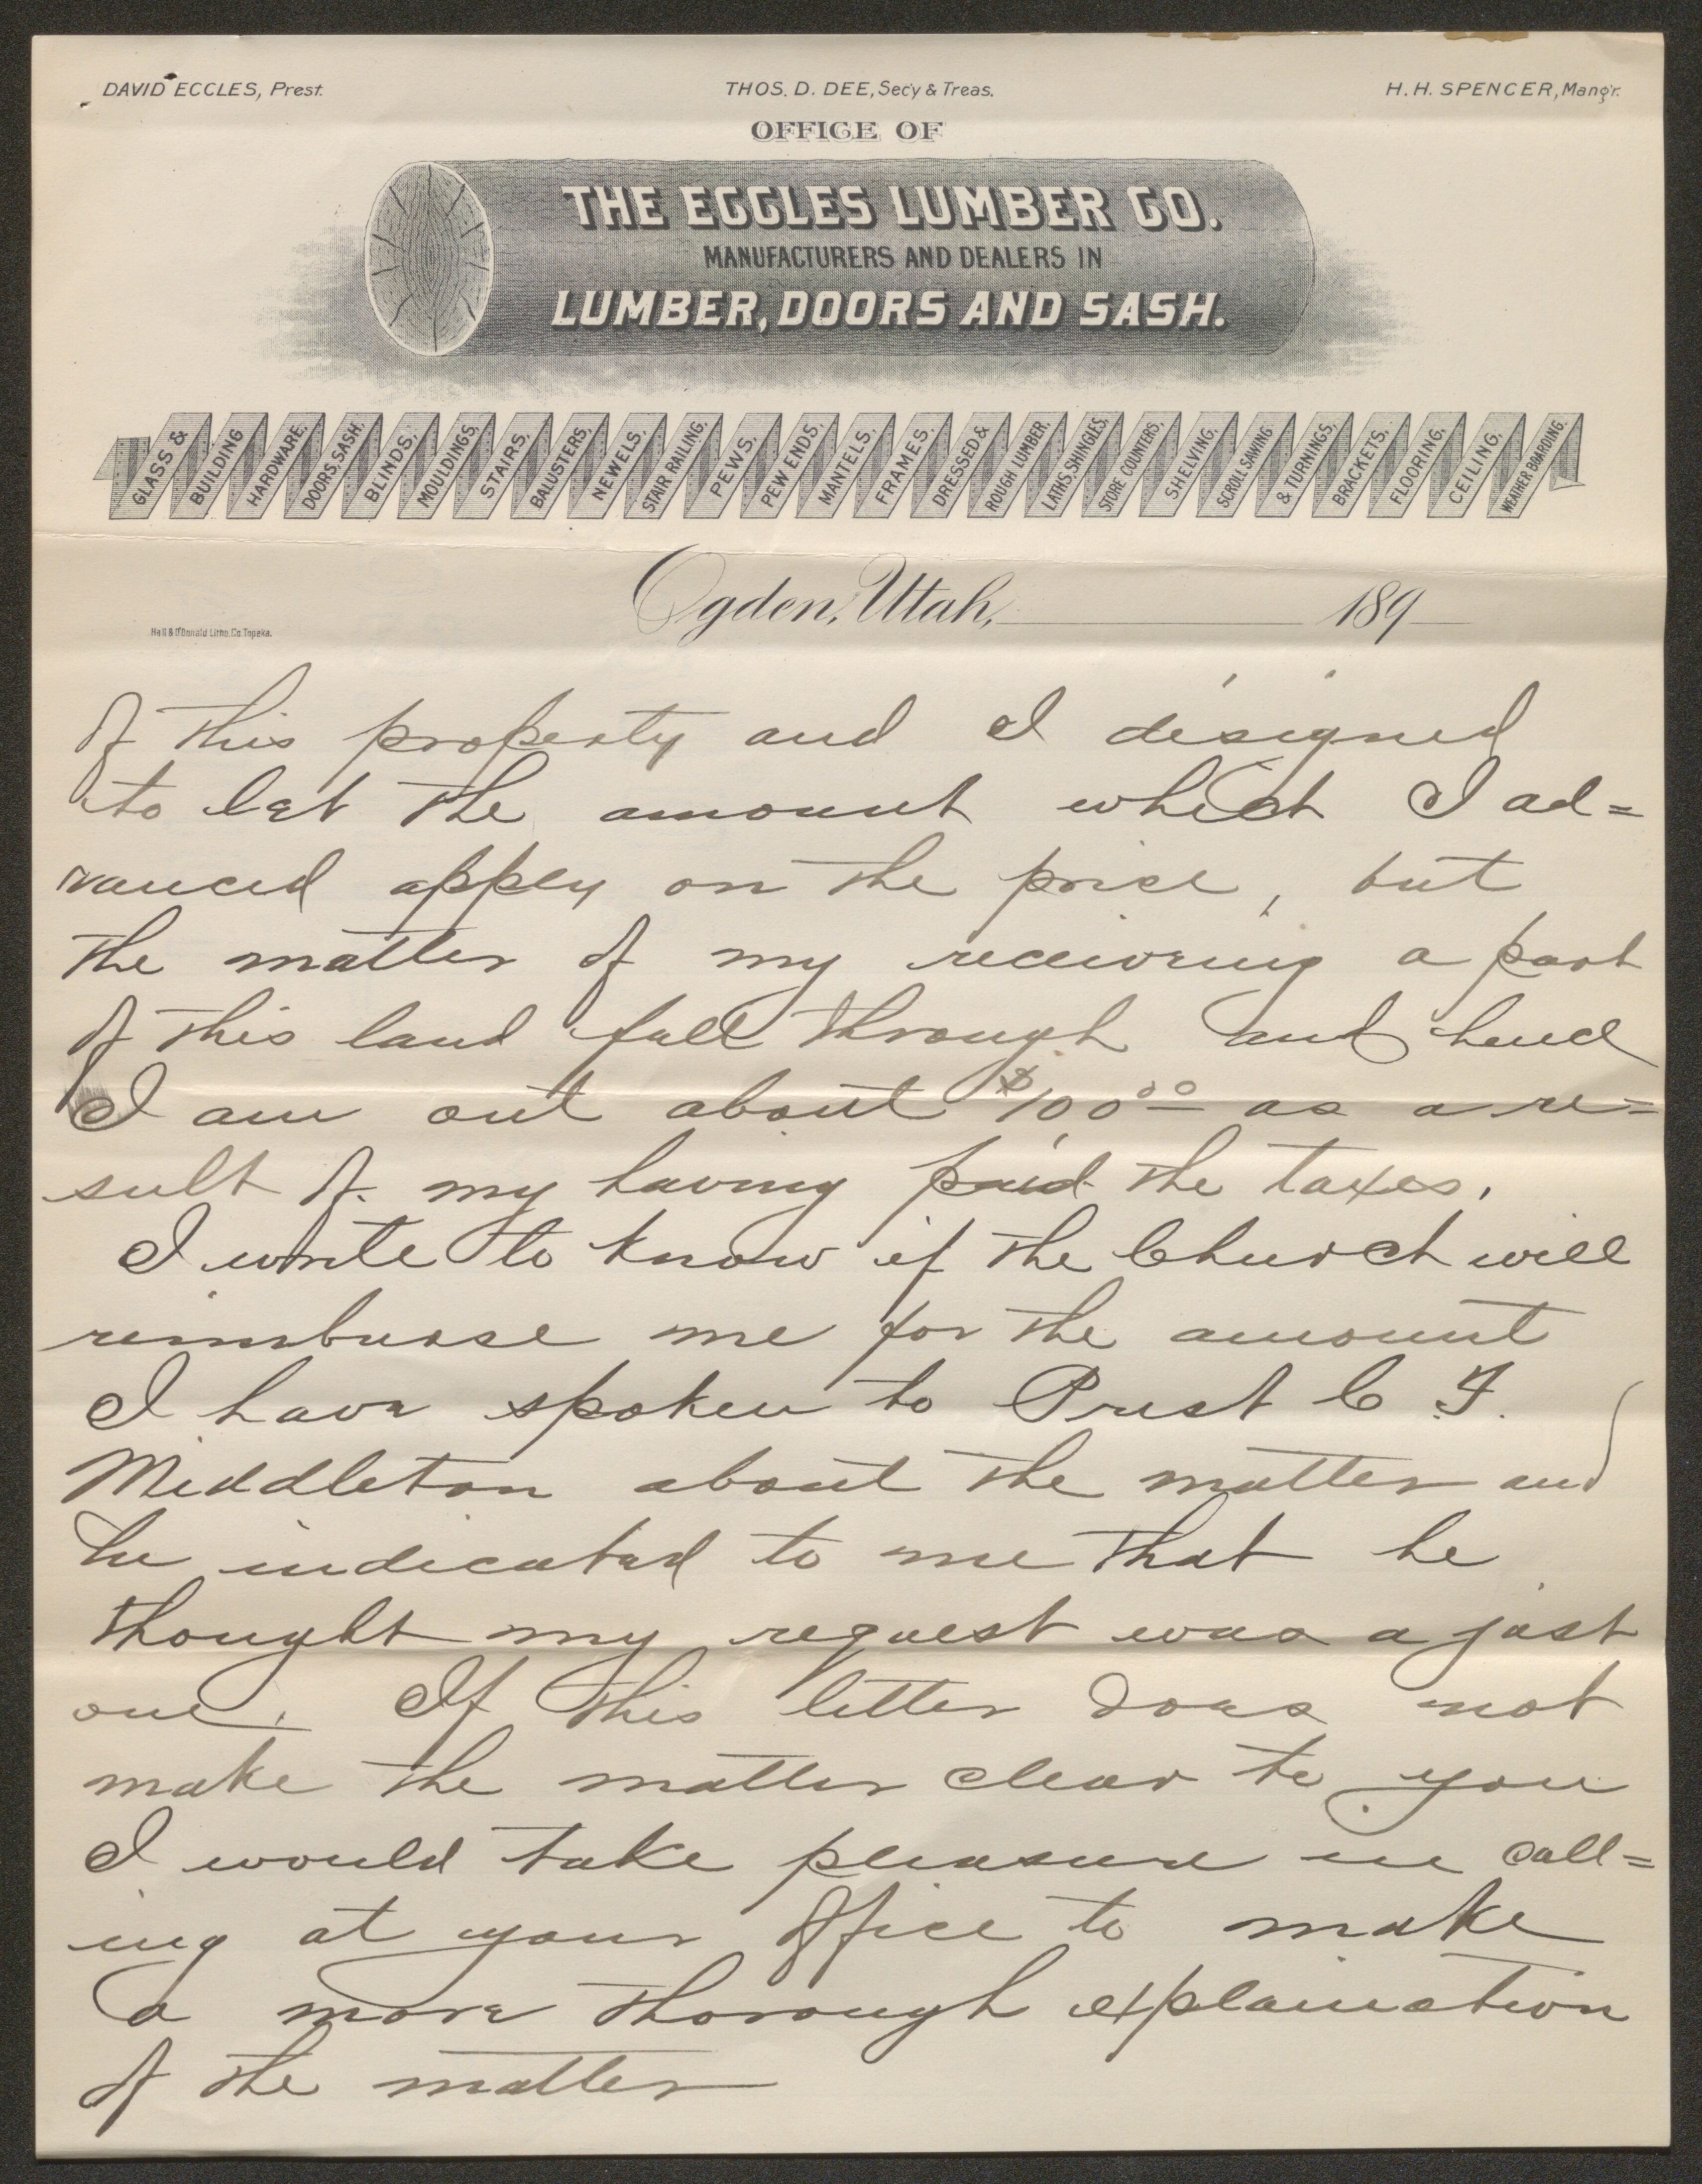 DAVID ECCLES, Prest.
THOS. D. DEE, Sec'y & Treas.
H. H. SPENCER, Mang'r.
OFFICE OF
THE ECCLES LUMBER CO.
MANUFACTURERS AND DEALERS IN
LUMBER, DOORS AND SASH.
GLASS & BUILDING HARDWARE. DOORS, SASH. BLINDS. MOULDINGS. STAIRS. BALUSTERS. NEWELS. STAIR RAILING. PEWS. PEW ENDS. MANTELS. FRAMES. DRESSED & ROUGH LUMBER. LATHS. SHINGLES. STORE COUNTERS. SHELVING. SCROLL SAWING & TURNINGS. BRACKETS. FLOORING. CEILING. WEATHER BOARDING.
Ogden, Utah, 189
Hall & O'Donald Litho. Co. Topeka.
of this property and I designed
to let the amount which I ad=
vanced apply on the price, but
the matter of my receiving a part
of this land fall through and hence
I am out about $100 00 as a re=
sult of my having paid the taxes.
I write to know if the Church will
reimburse me for the amount
I have spoken to Prest C F.
Middleton about the matter and
he indicated to me that he
thought my request was a just
one. If this letter does not
make the matter clear to you
I would take pleasure in call=
ing at your office to make
a more thorough explaination
of the matter